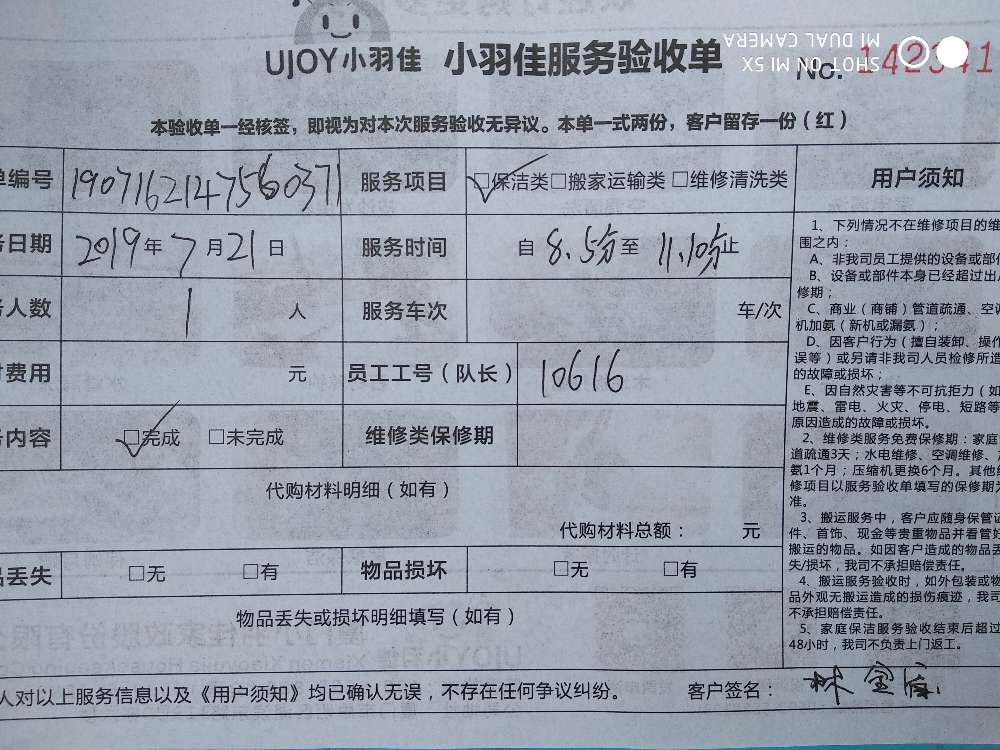 UJOY小羽佳 小羽佳服务验收单
SHOT ON MI 5X
MI DUAL CAMERA
No. 142341
本验收单一经核签，即视为对本次服务验收无异议。本单一式两份，客户留存一份（红）
单编号 19071621475660371 服务项目 □保洁类□搬家运输类 □维修清洗类
务日期 2019年7月21日 服务时间 自 8.5分至 11.10分止
务人数 1 人 服务车次 车/次
付费用 元 员工工号（队长） 10616
务内容 □完成 □未完成 维修类保修期
代购材料明细（如有）
代购材料总额： 元
品丢失 □无 □有 物品损坏 □无 □有
物品丢失或损坏明细填写（如有）
人对以上服务信息以及《用户须知》均已确认无误，不存在任何争议纠纷。 客户签名： 林
用户须知
1、下列情况不在维修项目的维
围之内：
A、非我司员工提供的设备或部件
B、设备或部件本身已经超过出
修期；
C、商业（商铺）管道疏通、空调
机加氨（新机或漏氨）；
D、因客户行为（擅自装卸、操作
误等）或另请非我司人员检修所造
的故障或损坏；
E、因自然灾害等不可抗拒力（如
地震、雷电、火灾、停电、短路等
原因造成的故障或损坏。
2、维修类服务免费保修期：家庭
道疏通3天；水电维修、空调维修、
氨1个月；压缩机更换6个月。其他
修项目以服务验收单填写的保修期为
准。
3、搬运服务中，客户应随身保管证
件、首饰、现金等贵重物品并看管好
搬运的物品。如因客户造成的物品丢
失/损坏，我司不承担赔偿责任。
4、搬运服务验收时，如外包装或物
品外观无搬运造成的损伤痕迹，我司
不承担赔偿责任。
5、家庭保洁服务验收结束后超过
48小时，我司不负责上门返工。